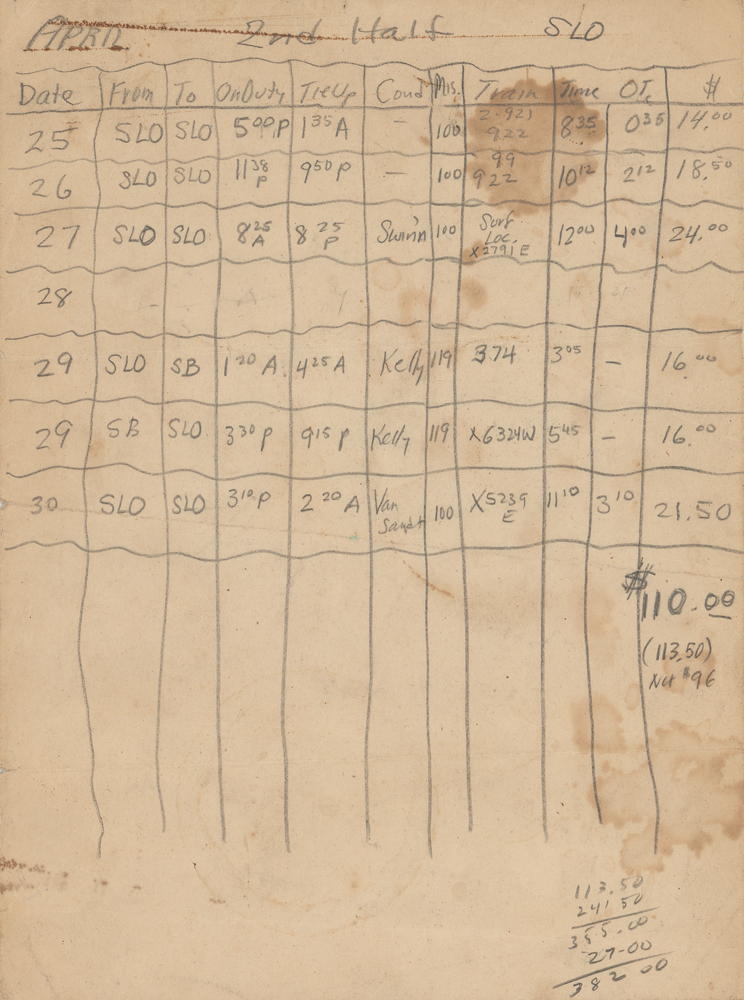 APRIL 2nd Half SLO
Date From To OnDuty TieUp Cond Mis. Train Time OT. $
25 SLO SLO 5 00 P 1 35 A — 100 2-921 922 8 35 0 35 14.00
26 SLO SLO 11 38 P 9 50 P — 100 99 922 10 12 2 12 18.50
27 SLO SLO 8 25 A 8 25 P 100 Surf Loc. X2791E 12 00 4 00 24.00
28
29 SLO SB 1 20 A 4 25 A Kelly 119 374 3 05 — 16.00
29 SB SLO 3 30 P 9 15 P Kelly 119 X6324W 5 45 — 16.00
30 SLO SLO 3 10 P 2 20 A Van Sandt 100 X5239 E 11 10 3 10 21.50
$110.00
(113.50)
Net $96
113.50
241 50
355.00
27-00
382 00